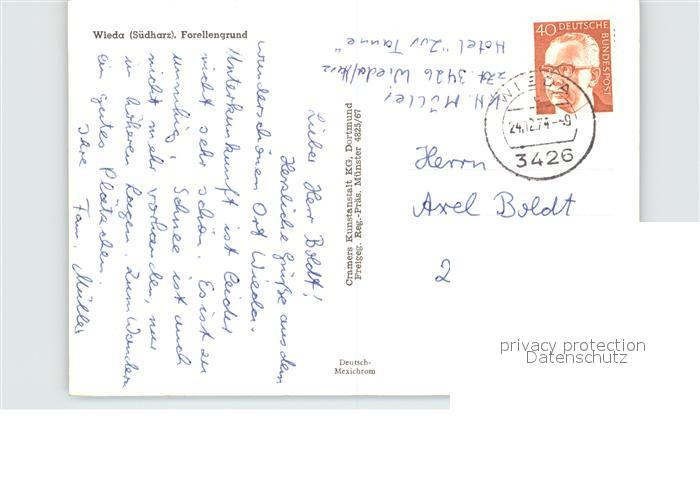 Wieda (Südharz). Forellengrund
Lieber Herr Boldt!
Herzliche Grüße aus dem
wunderschönen Ort Wieda.
Unterkunft ist leider
nicht sehr schön. Es ist zu
unruhig. Schnee ist auch
nicht mehr vorhanden, nur
in höheren Lagen. Zum Wandern
ein gutes Plätzchen.
Ihre Fam. Müller
Cramers Kunstanstalt KG, Dortmund
Freigeg. Reg.-Präs. Münster 4825/67
Deutsch-
Mexichrom
Müller
zzt. 3426 Wieda/Harz
Hotel "Zur Tanne"
40 DEUTSCHE
BUNDESPOST
WIEDA
24.12.74-9
3426
Herrn
Axel Boldt
2
privacy protection
Datenschutz